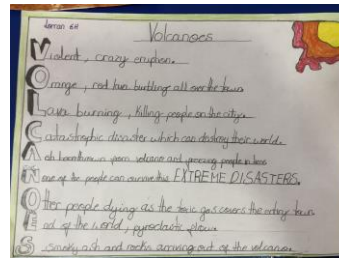 Volcanoes
Violent, crazy eruption.
Orange, red lava bubbling all over the town
Lava burning, killing people on the
Catastrophic disaster which can destroy their world.
A volcano and people in
None of the people can survive this EXTREME DISASTERS.
Other people dying as the toxic gas covers the entire town
End of the world, pyroclastic flow.
Smoky ash and rocks out of the volcano.